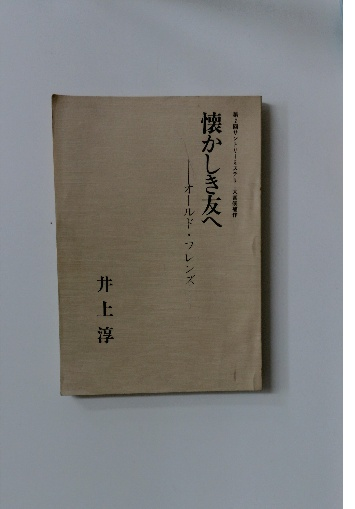 第2回サントリーミステリー大賞候補作
懐かしき友へ
——オールド・フレンズ
井上淳